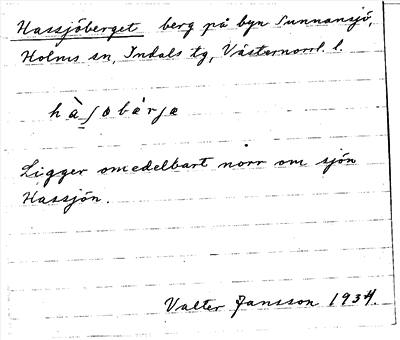 Hassjöberget berg på byn Sunnansjö,
Holms sn, Indals tg, Västernorrl. l.
Ligger omedelbart norr om sjön
Hassjön.
Valter Jansson 1934.